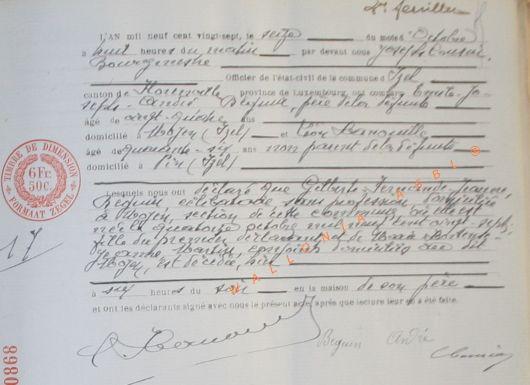 1er feuillet
L'AN mil neuf cent vingt-sept, le seize du mois d'Octobre
à huit heures du matin par devant nous Joseph
Bourgmestre
Officier de l'état-civil de la commune d'Izel
canton de Florenville province de Luxembourg, ont comparu Jo-
seph-André Béguin, père de la défunte
âgé de vingt-quatre ans
domicilié à Moyen (Izel) et Léon
âgé de quarante-six ans non parent de la défunte
domicilié à Pin (Izel)
Lesquels nous ont déclaré que Gilberte-Fernande-Jeanne
Béguin, célibataire sans profession, domiciliée
à Moyen, section de cette commune où elle est
née le quatorze octobre mil neuf cent vingt-sept,
fille du premier déclarant et de Maria
Jeanne conjoints domiciliés au dit
Moyen, est décédée, hier
à six heures du soir en la maison de son père
et ont les déclarants signé avec nous le présent acte, après que lecture leur en a été faite.
Béguin André
TIMBRE DE DIMENSION
6 Fr.
50 C.
FORMAAT ZEGEL
17
0868
WALLONIA